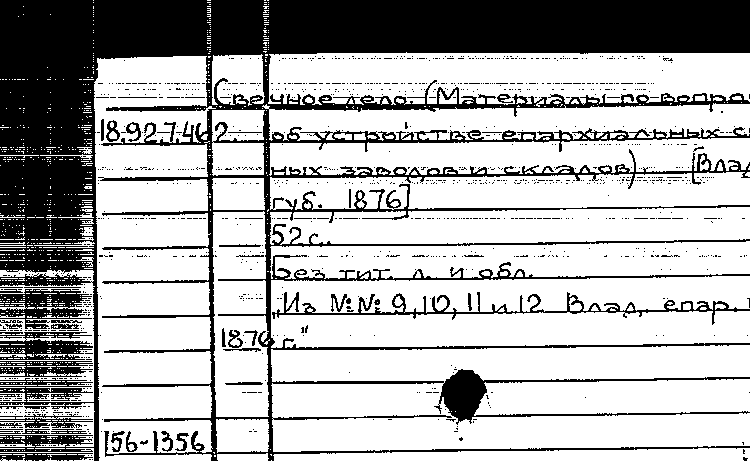 Свечное дело. (Материалы по вопро
18.92.7.462. об устройстве епархиальных с
ных заводов и складов). [Влад
губ., 1876]
52 с.
Без тит. л. и обл.
„Из №№ 9, 10, 11 и 12 Влад. епар.
1876 г."
156-1356